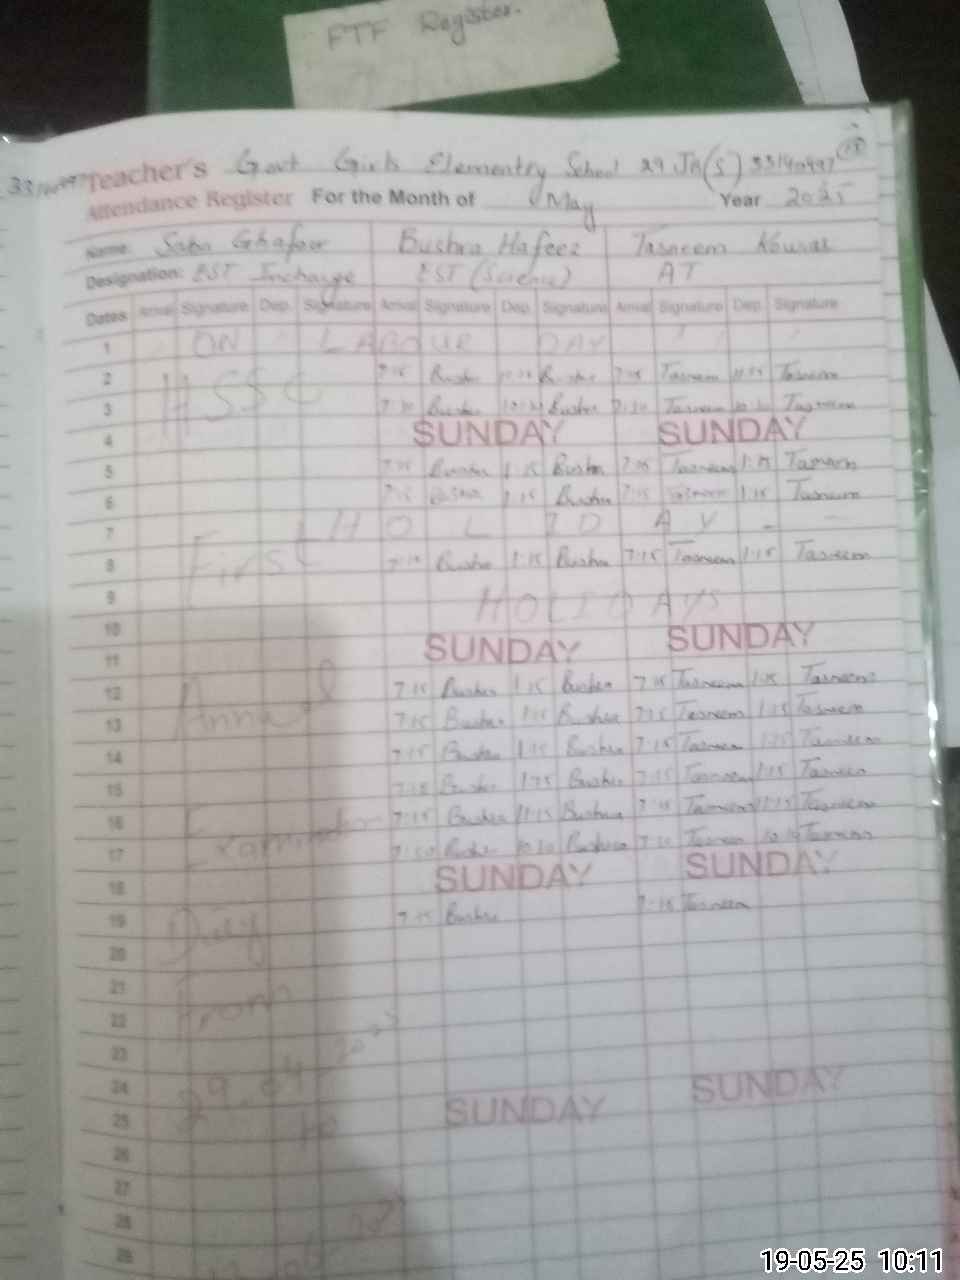 FTF Register.
Teacher's Govt Girls Elementry School 29 JB(S) 33140497
Attendance Register For the Month of May Year 2025
Name: Saba Ghafoor Bushra Hafeez Tasneem Kousar
Designation: EST Incharge EST (Science) AT
Dates Arrival Signature Dep. Signature Arrival Signature Dep. Signature Arrival Signature Dep. Signature
1 ON LABOUR DAY
2 7:15 Bushra Bushra 7:15 Tasneem Tasneem
HSSC
3 7:30 Bushra Bushra 7:30 Tasneem Tasneem
4 SUNDAY SUNDAY
5 7:15 Bushra 1:15 Bushra 7:15 Tasneem 1:15 Tasneem
6 7:15 Bushra 1:15 Bushra 7:15 Tasneem 1:15 Tasneem
7 HOLIDAY
First
8 7:15 Bushra 1:15 Bushra 7:15 Tasneem 1:15 Tasneem
9 HOLIDAYS
10
11 SUNDAY SUNDAY
12 7:15 Bushra 1:15 Bushra 7:15 Tasneem 1:15 Tasneem
Annual
13 7:15 Bushra 1:15 Bushra 7:15 Tasneem 1:15 Tasneem
14 7:15 Bushra 1:15 Bushra 7:15 Tasneem 1:15 Tasneem
15 7:15 Bushra 1:15 Bushra 7:15 Tasneem 1:15 Tasneem
16 7:15 Bushra 11:15 Bushra 7:15 Tasneem 11:15 Tasneem
Examination
17 Bushra 10:30 Bushra 7:30 Tasneem Tasneem
18 SUNDAY SUNDAY
19 7:15 Bushra 7:15 Tasneem
Duty
20
21
From
22
23
24
29.04.2025
25 SUNDAY SUNDAY
to
26
27
28
29
19-05-25 10:11